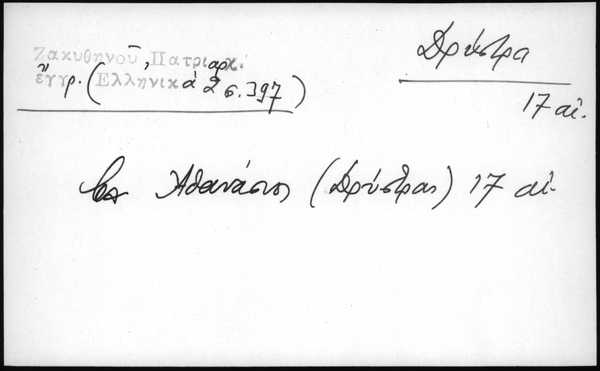 Ζακυθηνού, Πατριαρχ.
ἔγγρ. (Ἑλληνικά 2 σ. 397)
Δρύστρα
17 αἰ.
Ἀθανάσιος (Δρύστρας) 17 αἰ.